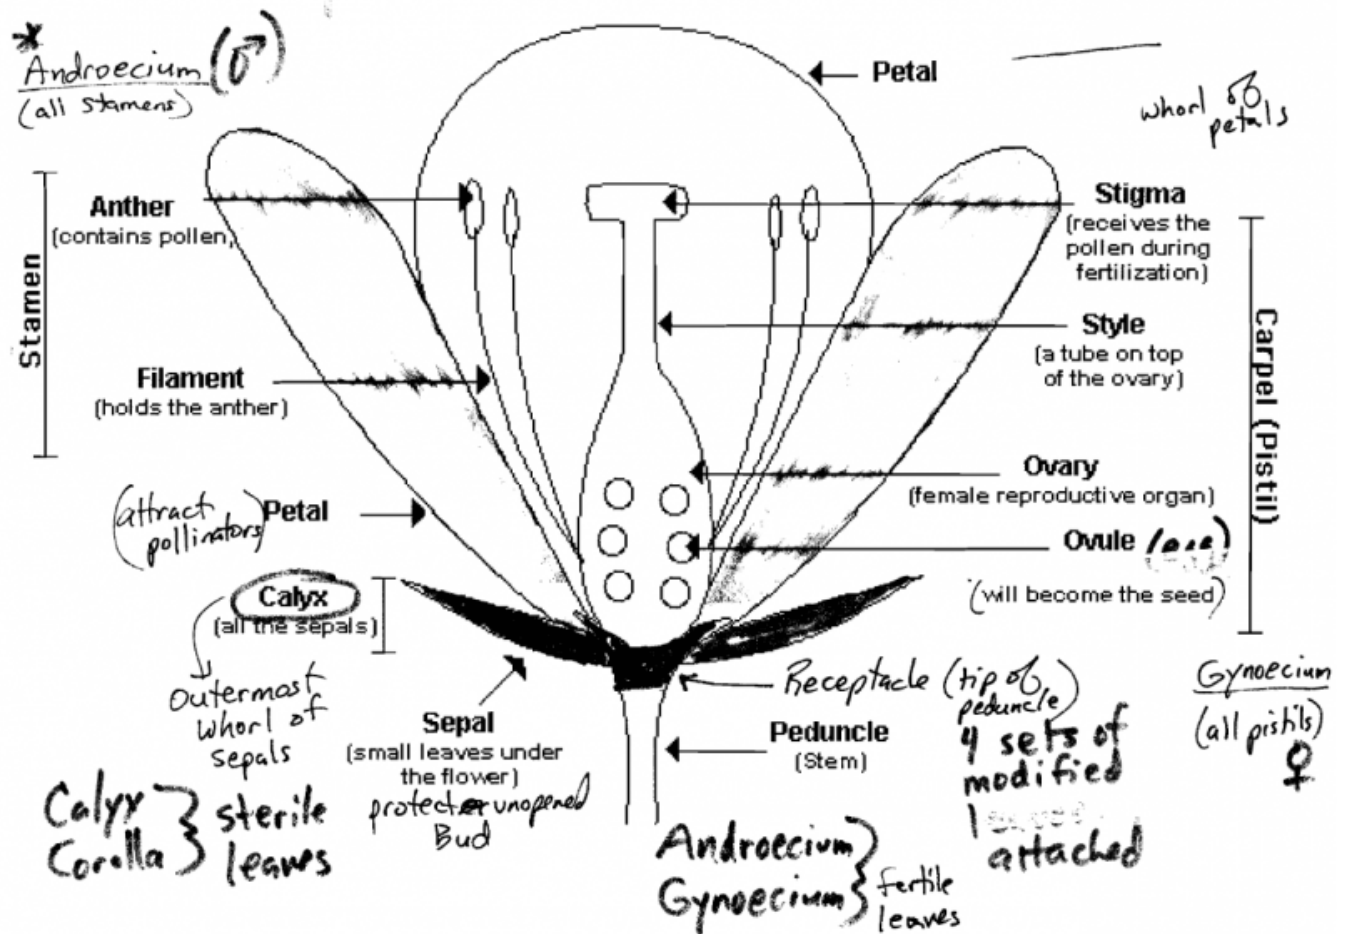 * Androecium (♂)
(all stamens)
Petal
whorl of
petals
Stamen
Anther
(contains pollen)
Filament
(holds the anther)
Stigma
(receives the
pollen during
fertilization)
Style
(a tube on top
of the ovary)
Carpel (Pistil)
Ovary
(female reproductive organ)
Ovule
(will become the seed)
(attract
pollinators)
Petal
Calyx
(all the sepals)
Outermost
whorl of
sepals
Sepal
(small leaves under
the flower)
protect unopened
Bud
Receptacle (tip of
peduncle)
Peduncle
(Stem)
4 sets of
modified
attached
Gynoecium
(all pistils)
♀
Calyx
Corolla
} sterile
leaves
Androecium
Gynoecium
} fertile
leaves